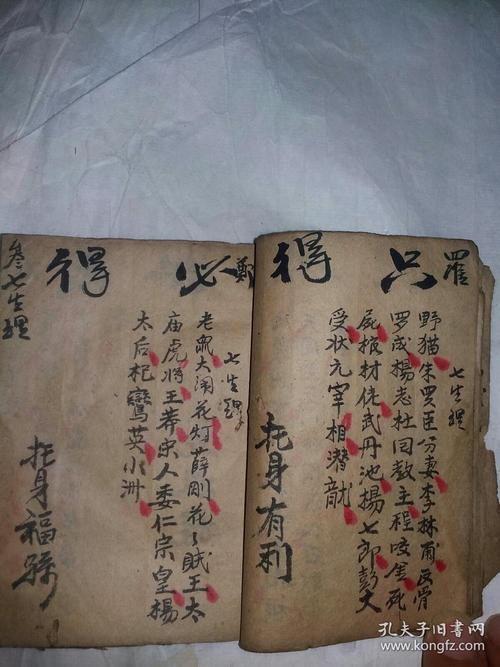 羅
只得
七生理
野猫朱買臣分妻李林甫反骨
罗成楊志杜回教主程咬金死
屍板材佬武丹池楊七郎彭大
受状元宰相潜龍
托身有利
鄭
必得
七生理
老鼠大闹花灯薛刚花子贼王太
庙虎将王莽宗人委仁宗皇楊
太后杞鸞英小洲
托身福
叁七生理
孔夫子旧书网
www.kongfz.com